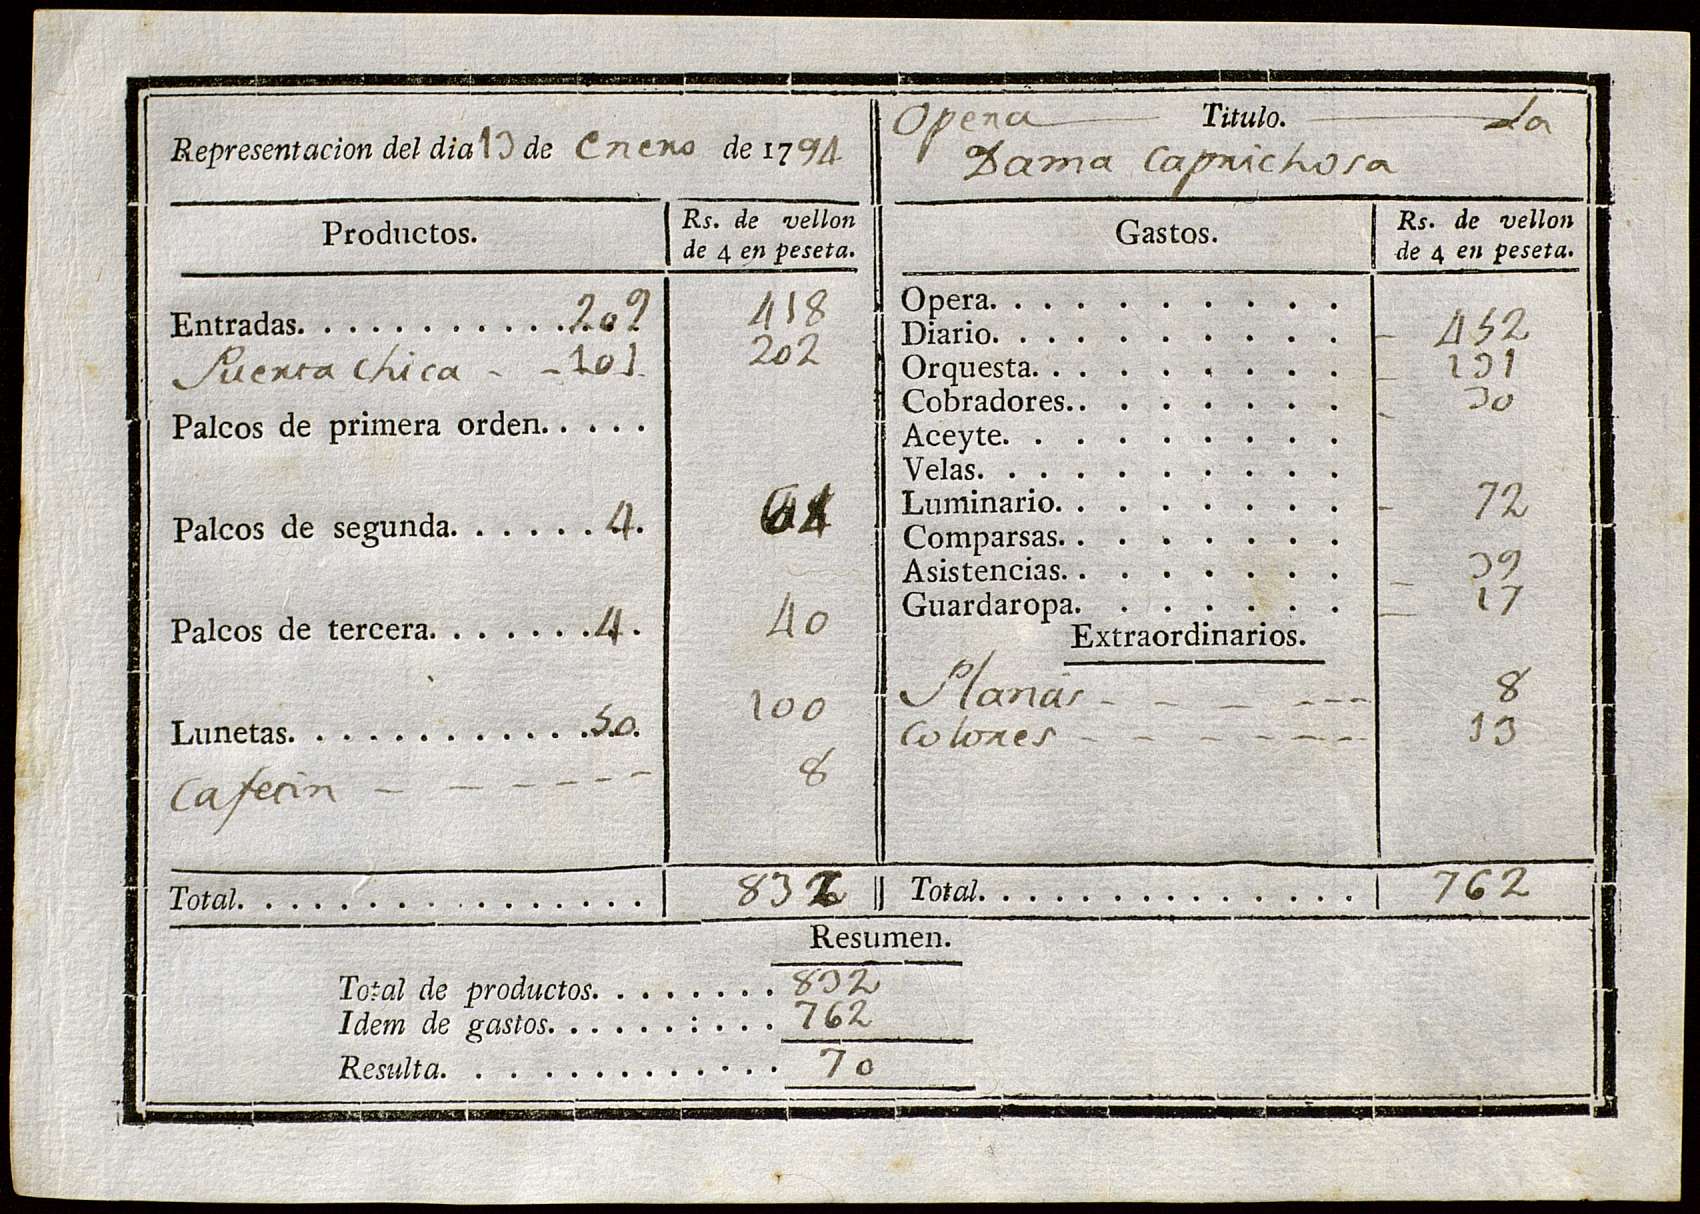 Representacion del dia 13 de Enero de 1794
Opera Titulo. La
Dama Caprichosa
Productos.
Rs. de vellon
de 4 en peseta.
Entradas. 209 418
Puerta chica - - 101 202
Palcos de primera orden.
Palcos de segunda. 4. 64
Palcos de tercera. 4. 40
Lunetas. 50. 100
Cafetin 8
Total. 832
Gastos.
Rs. de vellon
de 4 en peseta.
Opera.
Diario. 452
Orquesta. 131
Cobradores. 30
Aceyte.
Velas.
Luminario. 72
Comparsas.
Asistencias. 39
Guardaropa. 17
Extraordinarios.
Planas 8
Colores 13
Total. 762
Resumen.
Total de productos. 832
Idem de gastos. 762
Resulta. 70